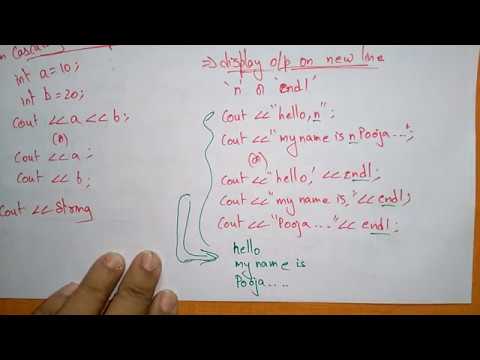 Cascading
int a=10;
int b=20;
Cout << a << b;
(or)
Cout << a;
Cout << b;
Cout << String
⇒ display o/p on new line
'n' or 'endl'
Cout << "hello, n";
Cout << "my name is n Pooja...";
(or)
Cout << "hello," << endl;
Cout << "my name is, " << endl;
Cout << "Pooja..." << endl;
hello
my name is
Pooja....